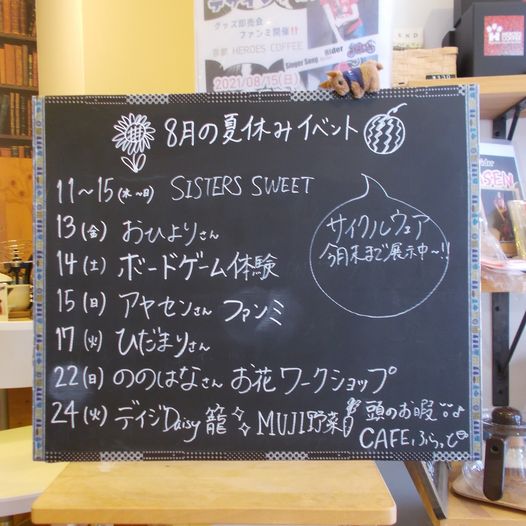 グッズ即売会
ファンミ開催!!
京都 HEROES COFFEE
Singer Song
Rider
2021/08/15(日)
8月の夏休みイベント
11～15(水～日) SISTERS SWEET
13(金) おひよりさん
14(土) ボードゲーム体験
15(日) アヤセンさん ファンミ
17(火) ひだまりさん
22(日) ののはなさん お花ワークショップ
24(火) デイジDaisy 籠 MUJI野菜 頭のお暇
CAFEふらっぴ
サイクルウェア
今月末まで展示中～!!